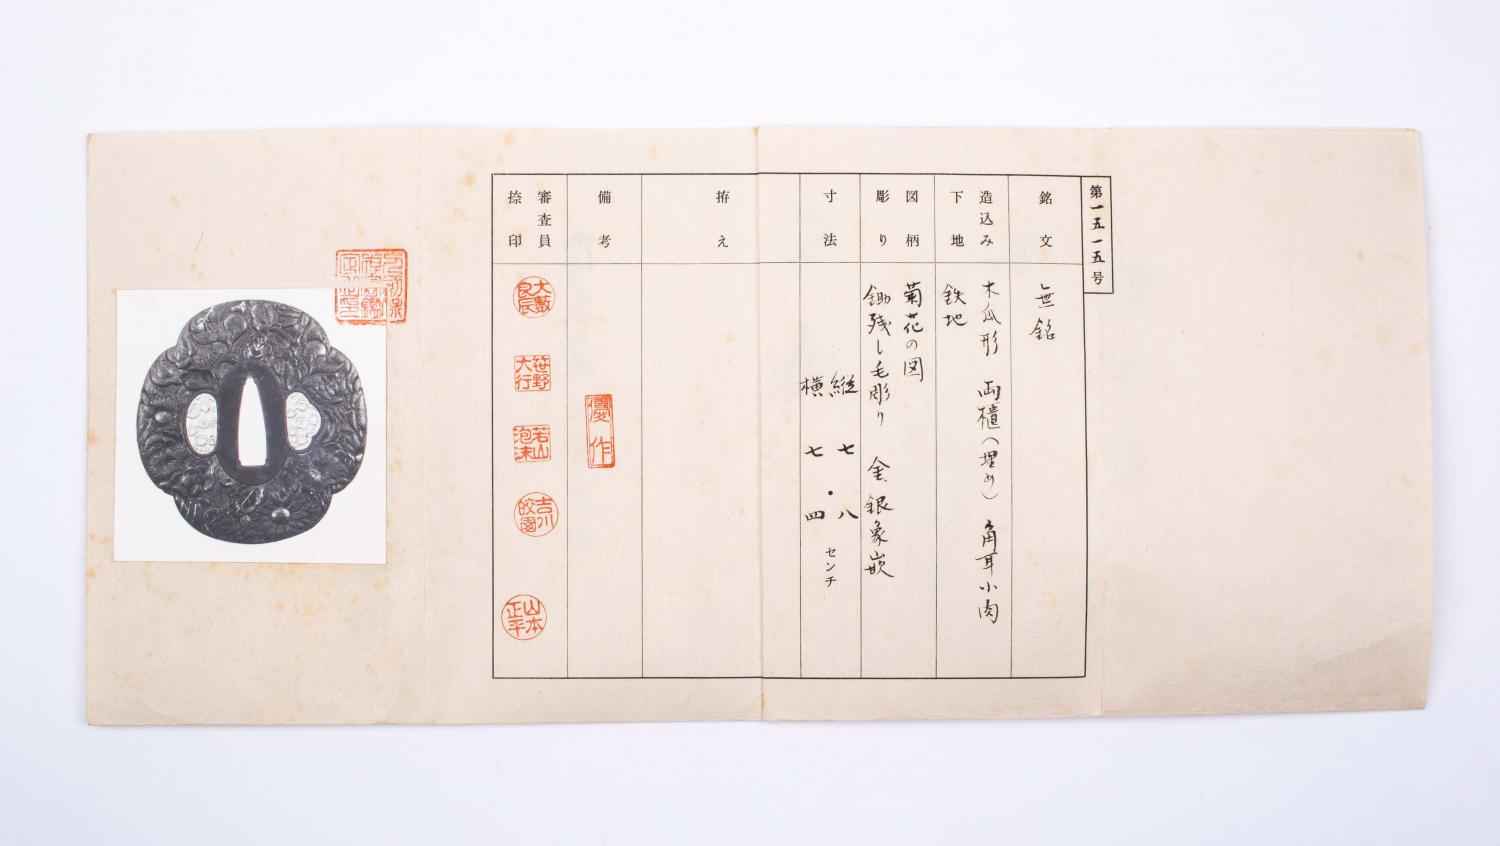 第一五一五号
銘文
無銘
造込み
木瓜形 両櫃(埋め) 角耳小肉
下地
鉄地
図柄
菊花の図
彫り
鋤残し毛彫り 金銀象嵌
寸法
縦 七・八
横 七・四
センチ
拵え
備考
優作
審査員
捺印
大藪
良辰
笹野
大行
若山
泡沫
吉川
皎園
山本
正平